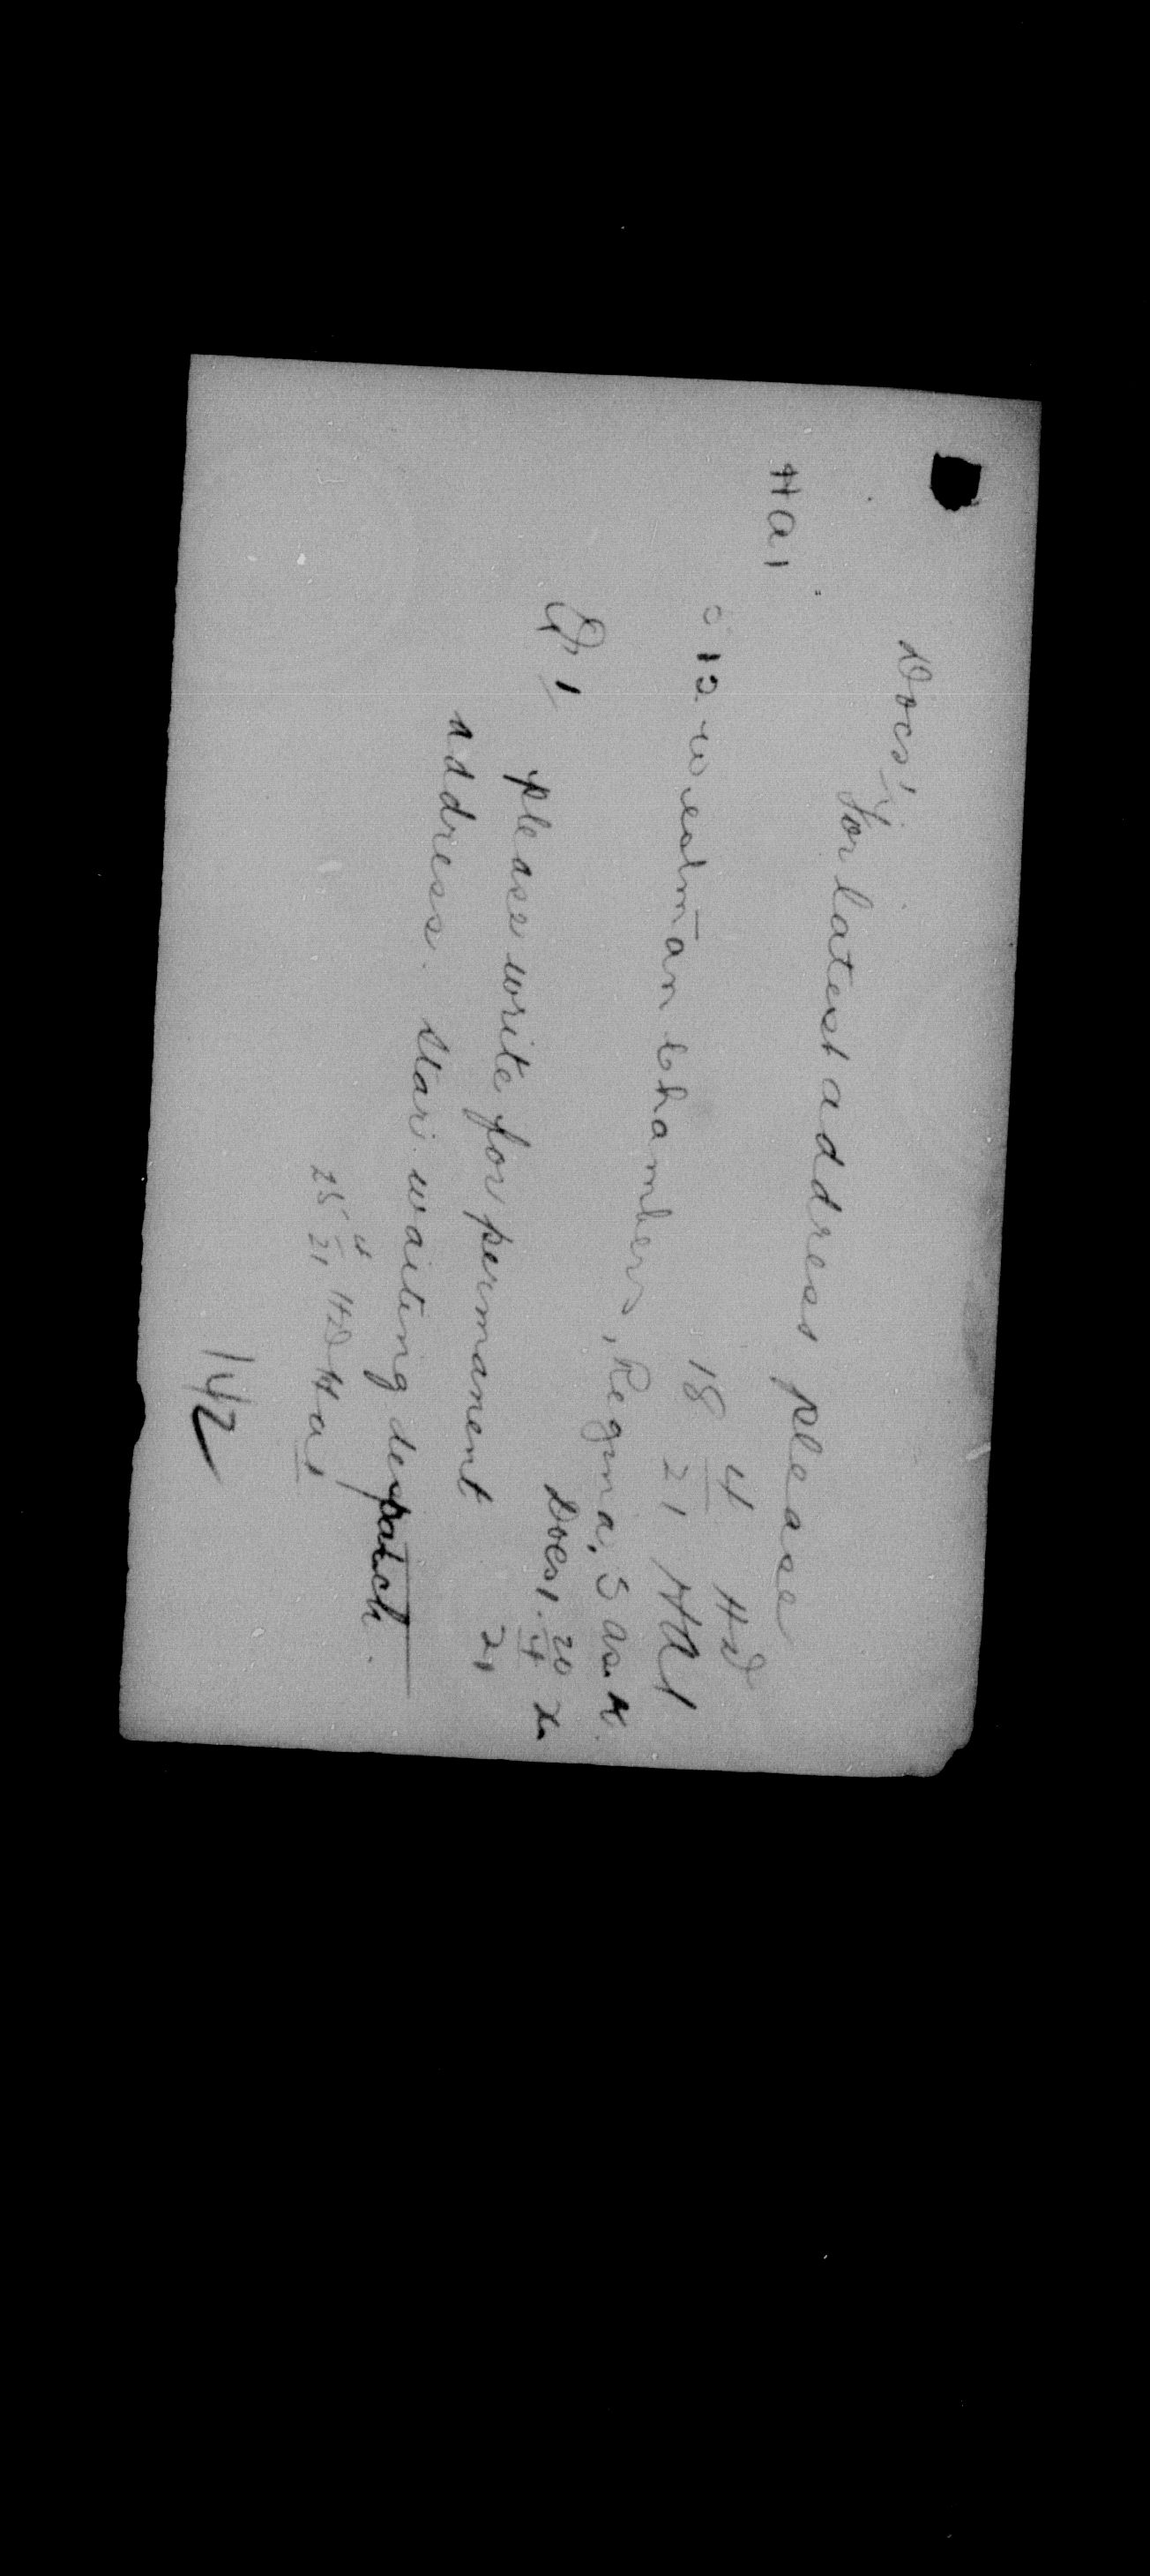 Docs 1
for latest address please
18 4/21 HD
HA1
HA1
012 Westman Chambers, Regina, Sask.
Docs 1. 20/4/21
please write for permanent
address. Star waiting despatch.
25 4/21 HD HA1
142